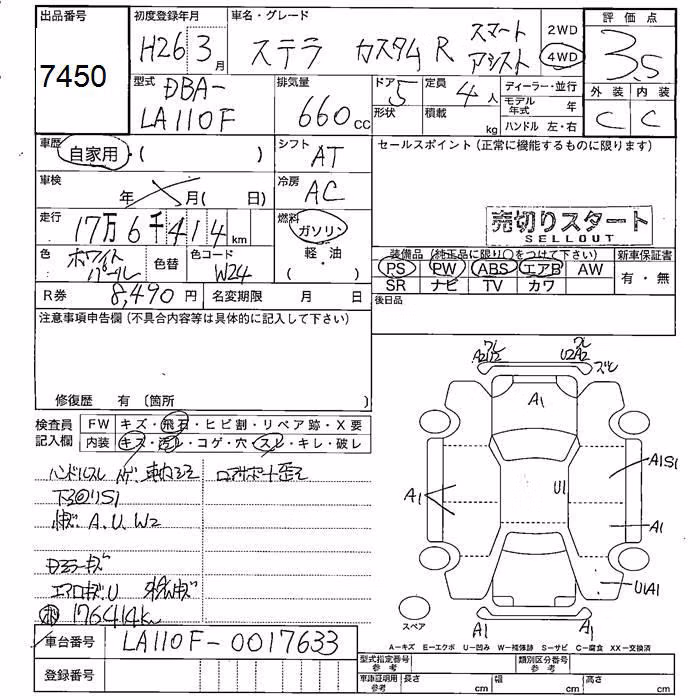 出品番号
7450
初度登録年月
H26 3月
車名・グレード
ステラ カスタム R スマート アシスト
2WD
4WD
評価点
3.5
外装 内装
C C
型式
DBA-
LA110F
排気量
660cc
ドア 5
形状
定員 4人
積載 kg
ディーラー・並行
モデル年式 年
ハンドル 左・右
車歴
自家用・( )
シフト AT
セールスポイント(正常に機能するものに限ります)
車検 年 月( 日)
冷房 AC
売切りスタート
SELLOUT
走行
17万6千414km
燃料
ガソリン
軽・油
( )
色 ホワイトパール
色替
色コード W24
装備品(純正品に限り○をつけて下さい)
新車保証書
PS PW ABS エアB AW
SR ナビ TV カワ
有・無
R券 8,490円
名変期限 月 日
後日品
注意事項申告欄(不具合内容等は具体的に記入して下さい)
修復歴 有(箇所 )
検査員記入欄
FW キズ・飛石・ヒビ割・リペア跡・X要
内装 キズ・汚レ・コゲ・穴・スレ・キレ・破レ
ハンドルスレ
ロアサポート歪
下廻りS1
キズ、A、U、W2
ドアミラーキズ
エアロキズ、U
176414km
A2U2
U2A2
A1
A1S1
U1
A1
A1
U1A1
スペア
A1
A1
A-キズ E-エクボ U-凹み W-補修跡 S-サビ C-腐食 XX-交換済
車台番号 LA110F-0017633
登録番号
型式指定番号 参考
類別区分番号 参考
車庫証明用 参考
長さ cm
幅 cm
高さ cm